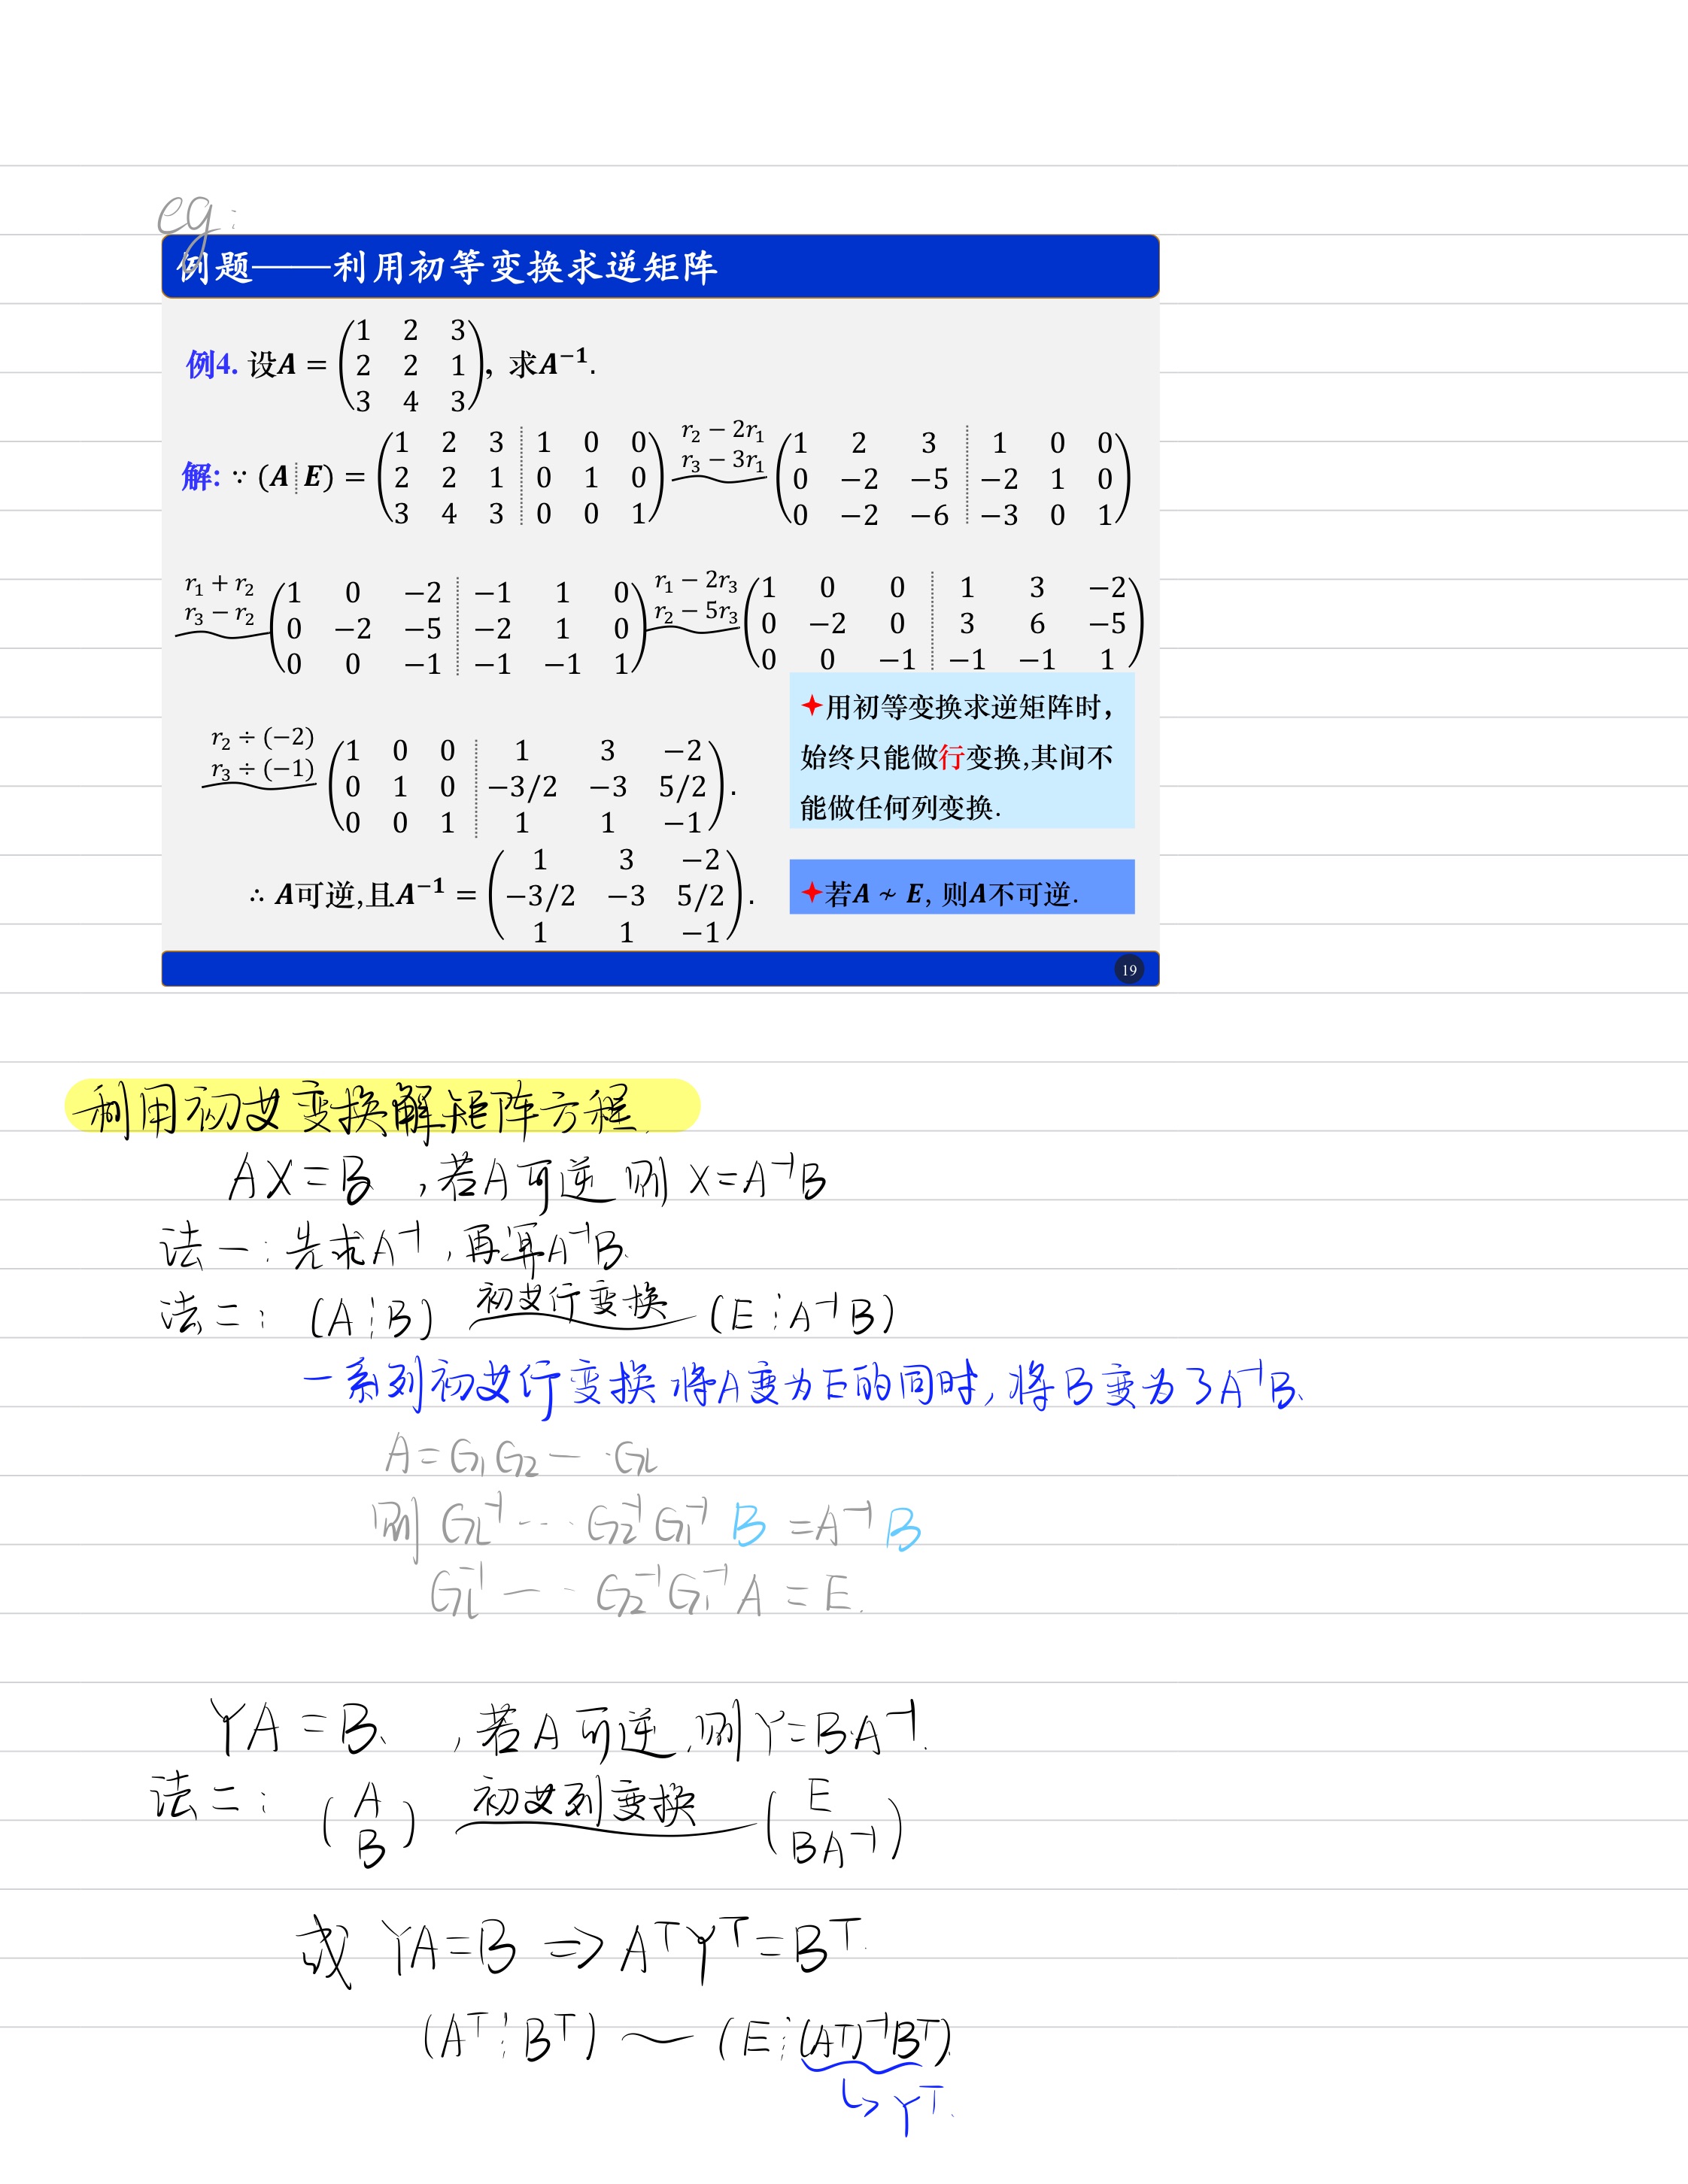 eg:
例题——利用初等变换求逆矩阵
例4. 设A = (1 2 3; 2 2 1; 3 4 3), 求A⁻¹.
解: ∵ (A ┊ E) = (1 2 3 ┊ 1 0 0; 2 2 1 ┊ 0 1 0; 3 4 3 ┊ 0 0 1) r₂ − 2r₁ r₃ − 3r₁ (1 2 3 ┊ 1 0 0; 0 −2 −5 ┊ −2 1 0; 0 −2 −6 ┊ −3 0 1)
r₁ + r₂ r₃ − r₂ (1 0 −2 ┊ −1 1 0; 0 −2 −5 ┊ −2 1 0; 0 0 −1 ┊ −1 −1 1) r₁ − 2r₃ r₂ − 5r₃ (1 0 0 ┊ 1 3 −2; 0 −2 0 ┊ 3 6 −5; 0 0 −1 ┊ −1 −1 1)
r₂ ÷ (−2) r₃ ÷ (−1) (1 0 0 ┊ 1 3 −2; 0 1 0 ┊ −3/2 −3 5/2; 0 0 1 ┊ 1 1 −1).
∴ A可逆,且A⁻¹ = (1 3 −2; −3/2 −3 5/2; 1 1 −1).
✦用初等变换求逆矩阵时,
始终只能做行变换,其间不
能做任何列变换.
✦若A ≁ E, 则A不可逆.
19
利用初艾变换解矩阵方程.
AX=B ,若A可逆 则 X=A⁻¹B
法一:先求A⁻¹,再算A⁻¹B.
法二: (A┊B) 初艾行变换 (E┊A⁻¹B)
一系列初艾行变换将A变为E的同时,将B变为了A⁻¹B.
A=G₁G₂—·G_L
则 G_L⁻¹···G₂⁻¹G₁⁻¹ B =A⁻¹ B
G_L⁻¹—··G₂⁻¹G₁⁻¹A=E.
YA=B. ,若A可逆,则Y=B·A⁻¹.
法二: (A; B) 初艾列变换 (E; BA⁻¹)
或 YA=B ⇒ AᵀYᵀ=Bᵀ.
(Aᵀ┊Bᵀ) ~ (E┊(Aᵀ)⁻¹Bᵀ).
↳ Yᵀ.